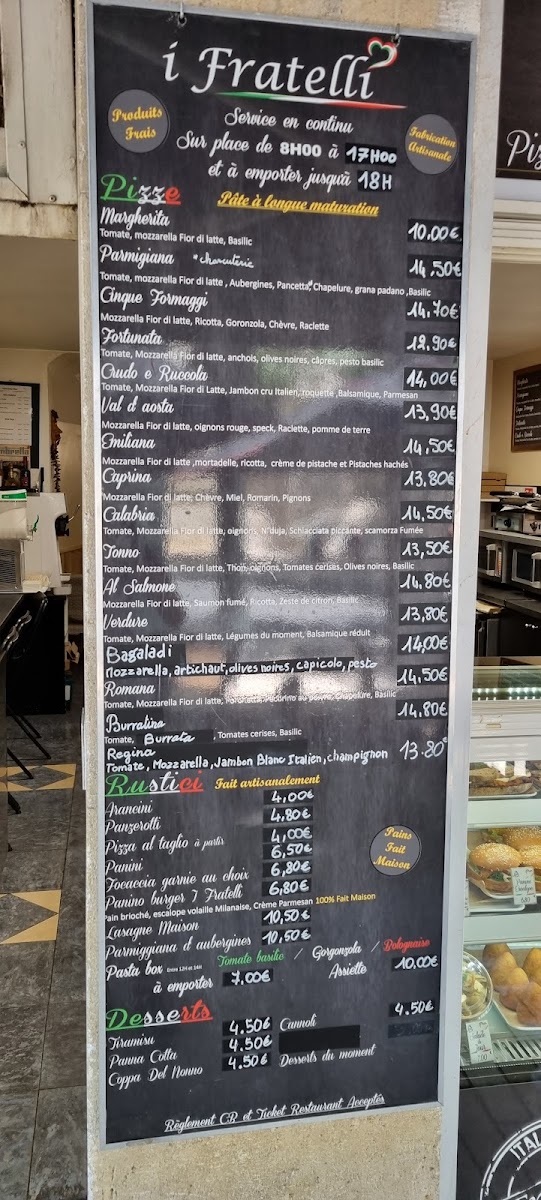 i Fratelli
Produits Frais
Service en continu
Fabrication Artisanale
Sur place de 8H00 à 17H00
et à emporter jusqu'à 18H
Pizze
Pâte à longue maturation
Margherita 10.00€
Tomate, mozzarella Fior di latte, Basilic
Parmigiana *charcuterie 14,50€
Tomate, mozzarella Fior di latte , Aubergines, Pancetta*, Chapelure, grana padano ,Basilic
Cinque Formaggi 14,70€
Mozzarella Fior di latte, Ricotta, Goronzola, Chèvre, Raclette
Fortunata 12,90€
Tomate, Mozzarella Fior di latte, anchois, olives noires, câpres, pesto basilic
Crudo e Ruccola 14,00€
Tomate, Mozzarella Fior di Latte, Jambon cru Italien, roquette ,Balsamique, Parmesan
Val d'aosta 13,90€
Mozzarella Fior di latte, oignons rouge, speck, Raclette, pomme de terre
Emiliana 14,50€
Mozzarella Fior di latte ,mortadelle, ricotta, crème de pistache et Pistaches hachés
Caprina 13,80€
Mozzarella Fior di latte, Chèvre, Miel, Romarin, Pignons
Calabria 14,50€
Tomate, Mozzarella Fior di latte, oignons, N'duja, Schiacciata piccante, scamorza Fumée
Tonno 13,50€
Tomate, Mozzarella Fior di latte, Thon, oignons, Tomates cerises, Olives noires, Basilic
Al Salmone 14,80€
Mozzarella Fior di latte, Saumon fumé, Ricotta, Zeste de citron, Basilic
Verdure 13,80€
Tomate, Mozzarella Fior di latte, Légumes du moment, Balsamique réduit
Bagaladi 14,00€
Mozzarella, artichaut, olives noires, capicolo, pesto
Romana 14,50€
Tomate, Mozzarella Fior di latte, au poivre, Chapelure, Basilic
Burratina 14,80€
Tomate, Burrata , Tomates cerises, Basilic
Regina 13.80€
Tomate, Mozzarella, Jambon Blanc Italien, champignon
Rustici Fait artisanalement
Arancini 4,00€
Panzerotti 4,80€
Pizza al taglio à partir 4,00€
Panini 6,50€
Focaccia garnie au choix 6,80€
Panino burger I Fratelli 6,80€
Pain brioché, escalope volaille Milanaise, Crème Parmesan 100% Fait Maison
Lasagne Maison 10,50€
Parmiggiana d'aubergines 10,50€
Pains Fait Maison
Pasta box Entre 12H et 14H Tomate basilic / Gorgonzola / Bolognaise
à emporter 7,00€ Assiette 10,00€
Desserts
Tiramisu 4.50€ Cannoli 4.50€
Panna Cotta 4.50€
Coppa Del Nonno 4.50€ Desserts du moment
Règlement CB et Ticket Restaurant Acceptés
Piz